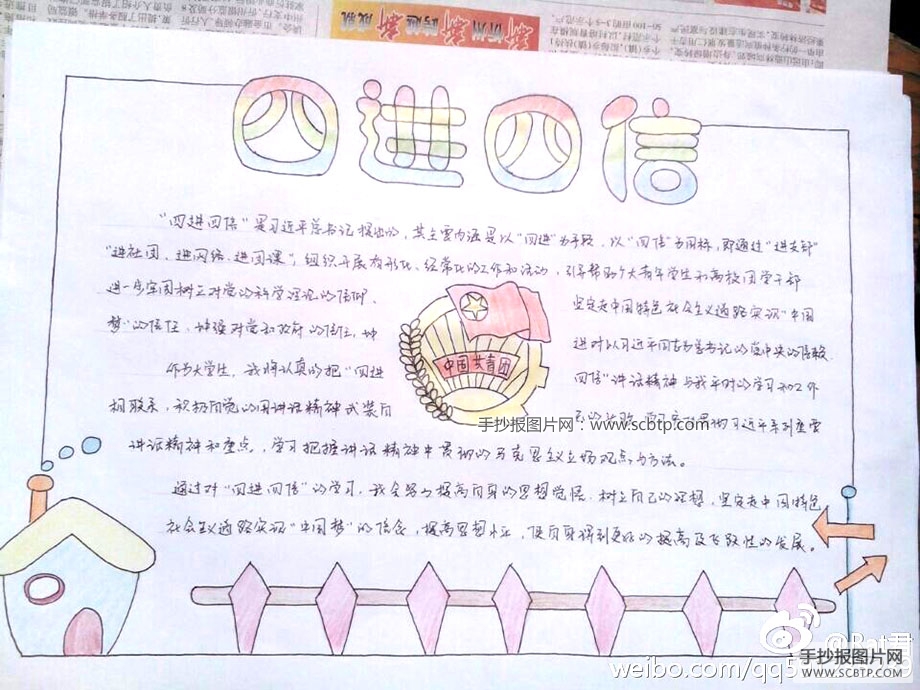 新 忻州 新 跨越 新 成就
四进四信
"四进四信"是习近平总书记提出的，其主要内涵是以"四进"为手段，以"四信"为目标，即通过"进支部"
"进社团、进网络、进团课"，组织开展有形化、经常化的工作和活动，引导帮助广大青年学生和高校团学干部
进一步牢固树立对党的科学理论的信仰、 坚定走中国特色社会主义道路实现"中国
梦"的信任，增强对党和政府的信任，增 进对以习近平同志为总书记的党中央的信赖
中国共青团
作为大学生，我将认真的把"四进 四信"讲话精神与我平时的学习和工作
相联系，积极自觉的用讲话精神武装自 学习贯彻习近平系列重要
手抄报图片网：www.scbtp.com
讲话精神和重点，学习把握讲话精神中贯彻的马克思主义立场观点与方法。
通过对"四进四信"的学习，我会努力提高自身的思想觉悟，树立自己的理想，坚定走中国特色
社会主义道路实现"中国梦"的信念，提高思想水平，使自身得到更好的提高及飞跃性的发展。
weibo.com/qq5
手抄报图片网
WWW.SCBTP.COM